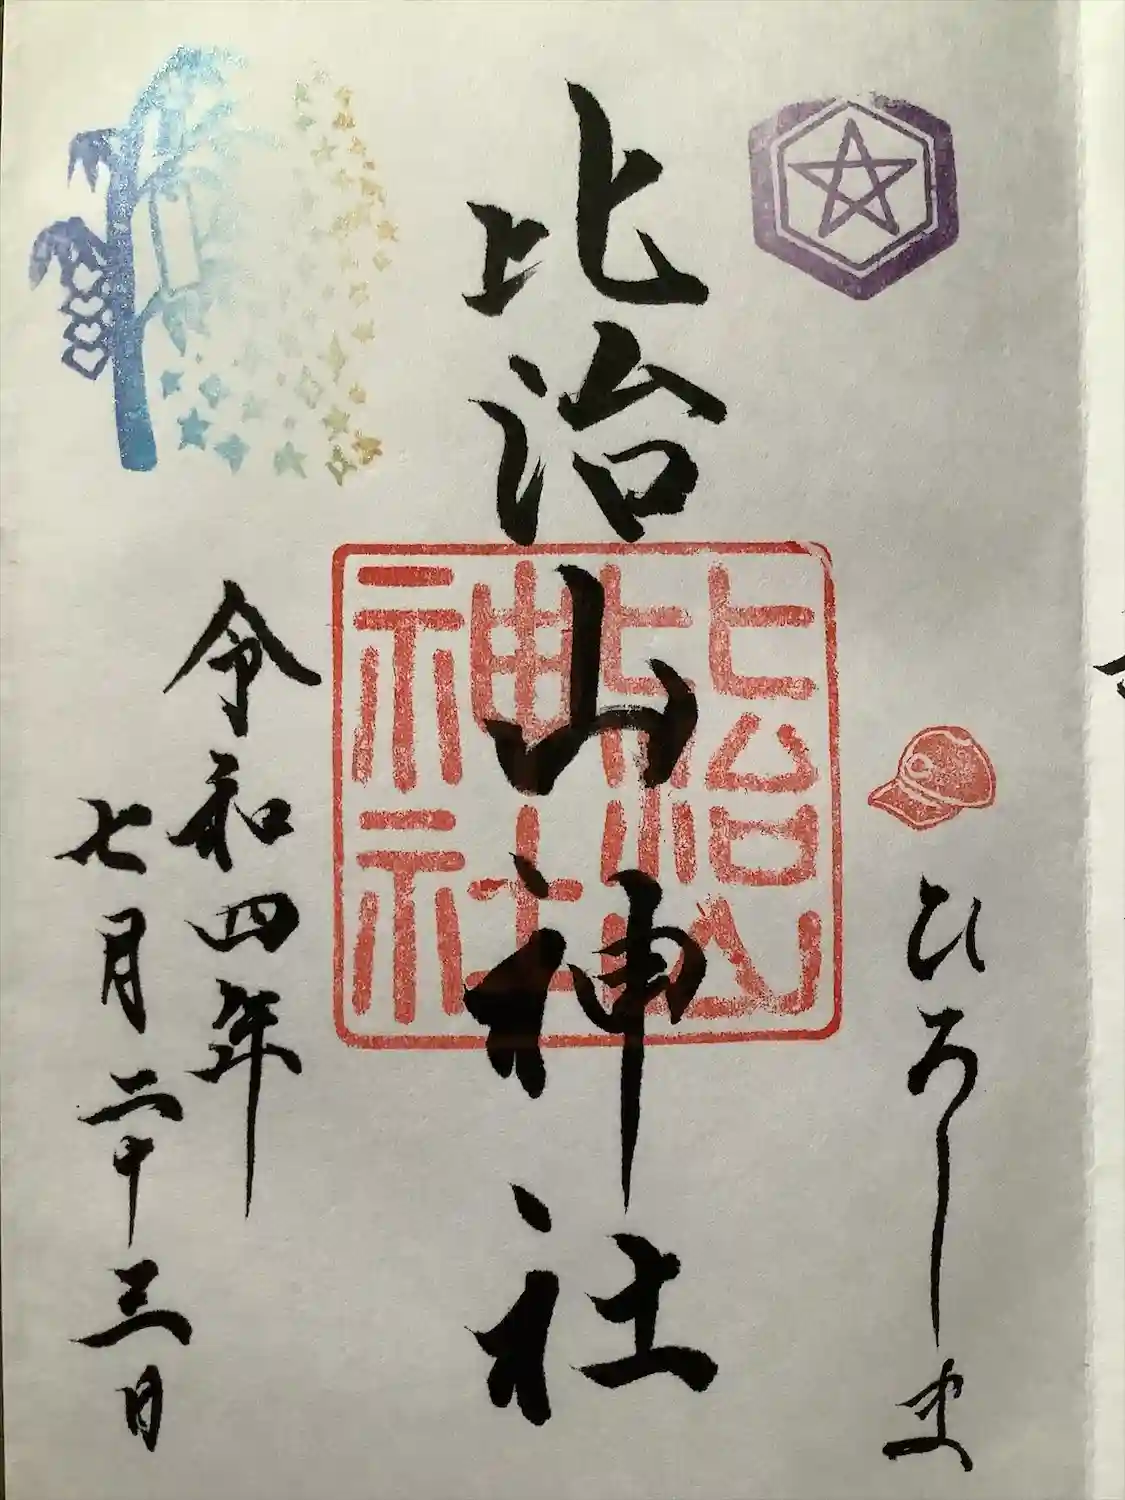 ひろしま
比治山神社
比治山神社
令和四年
七月二十三日